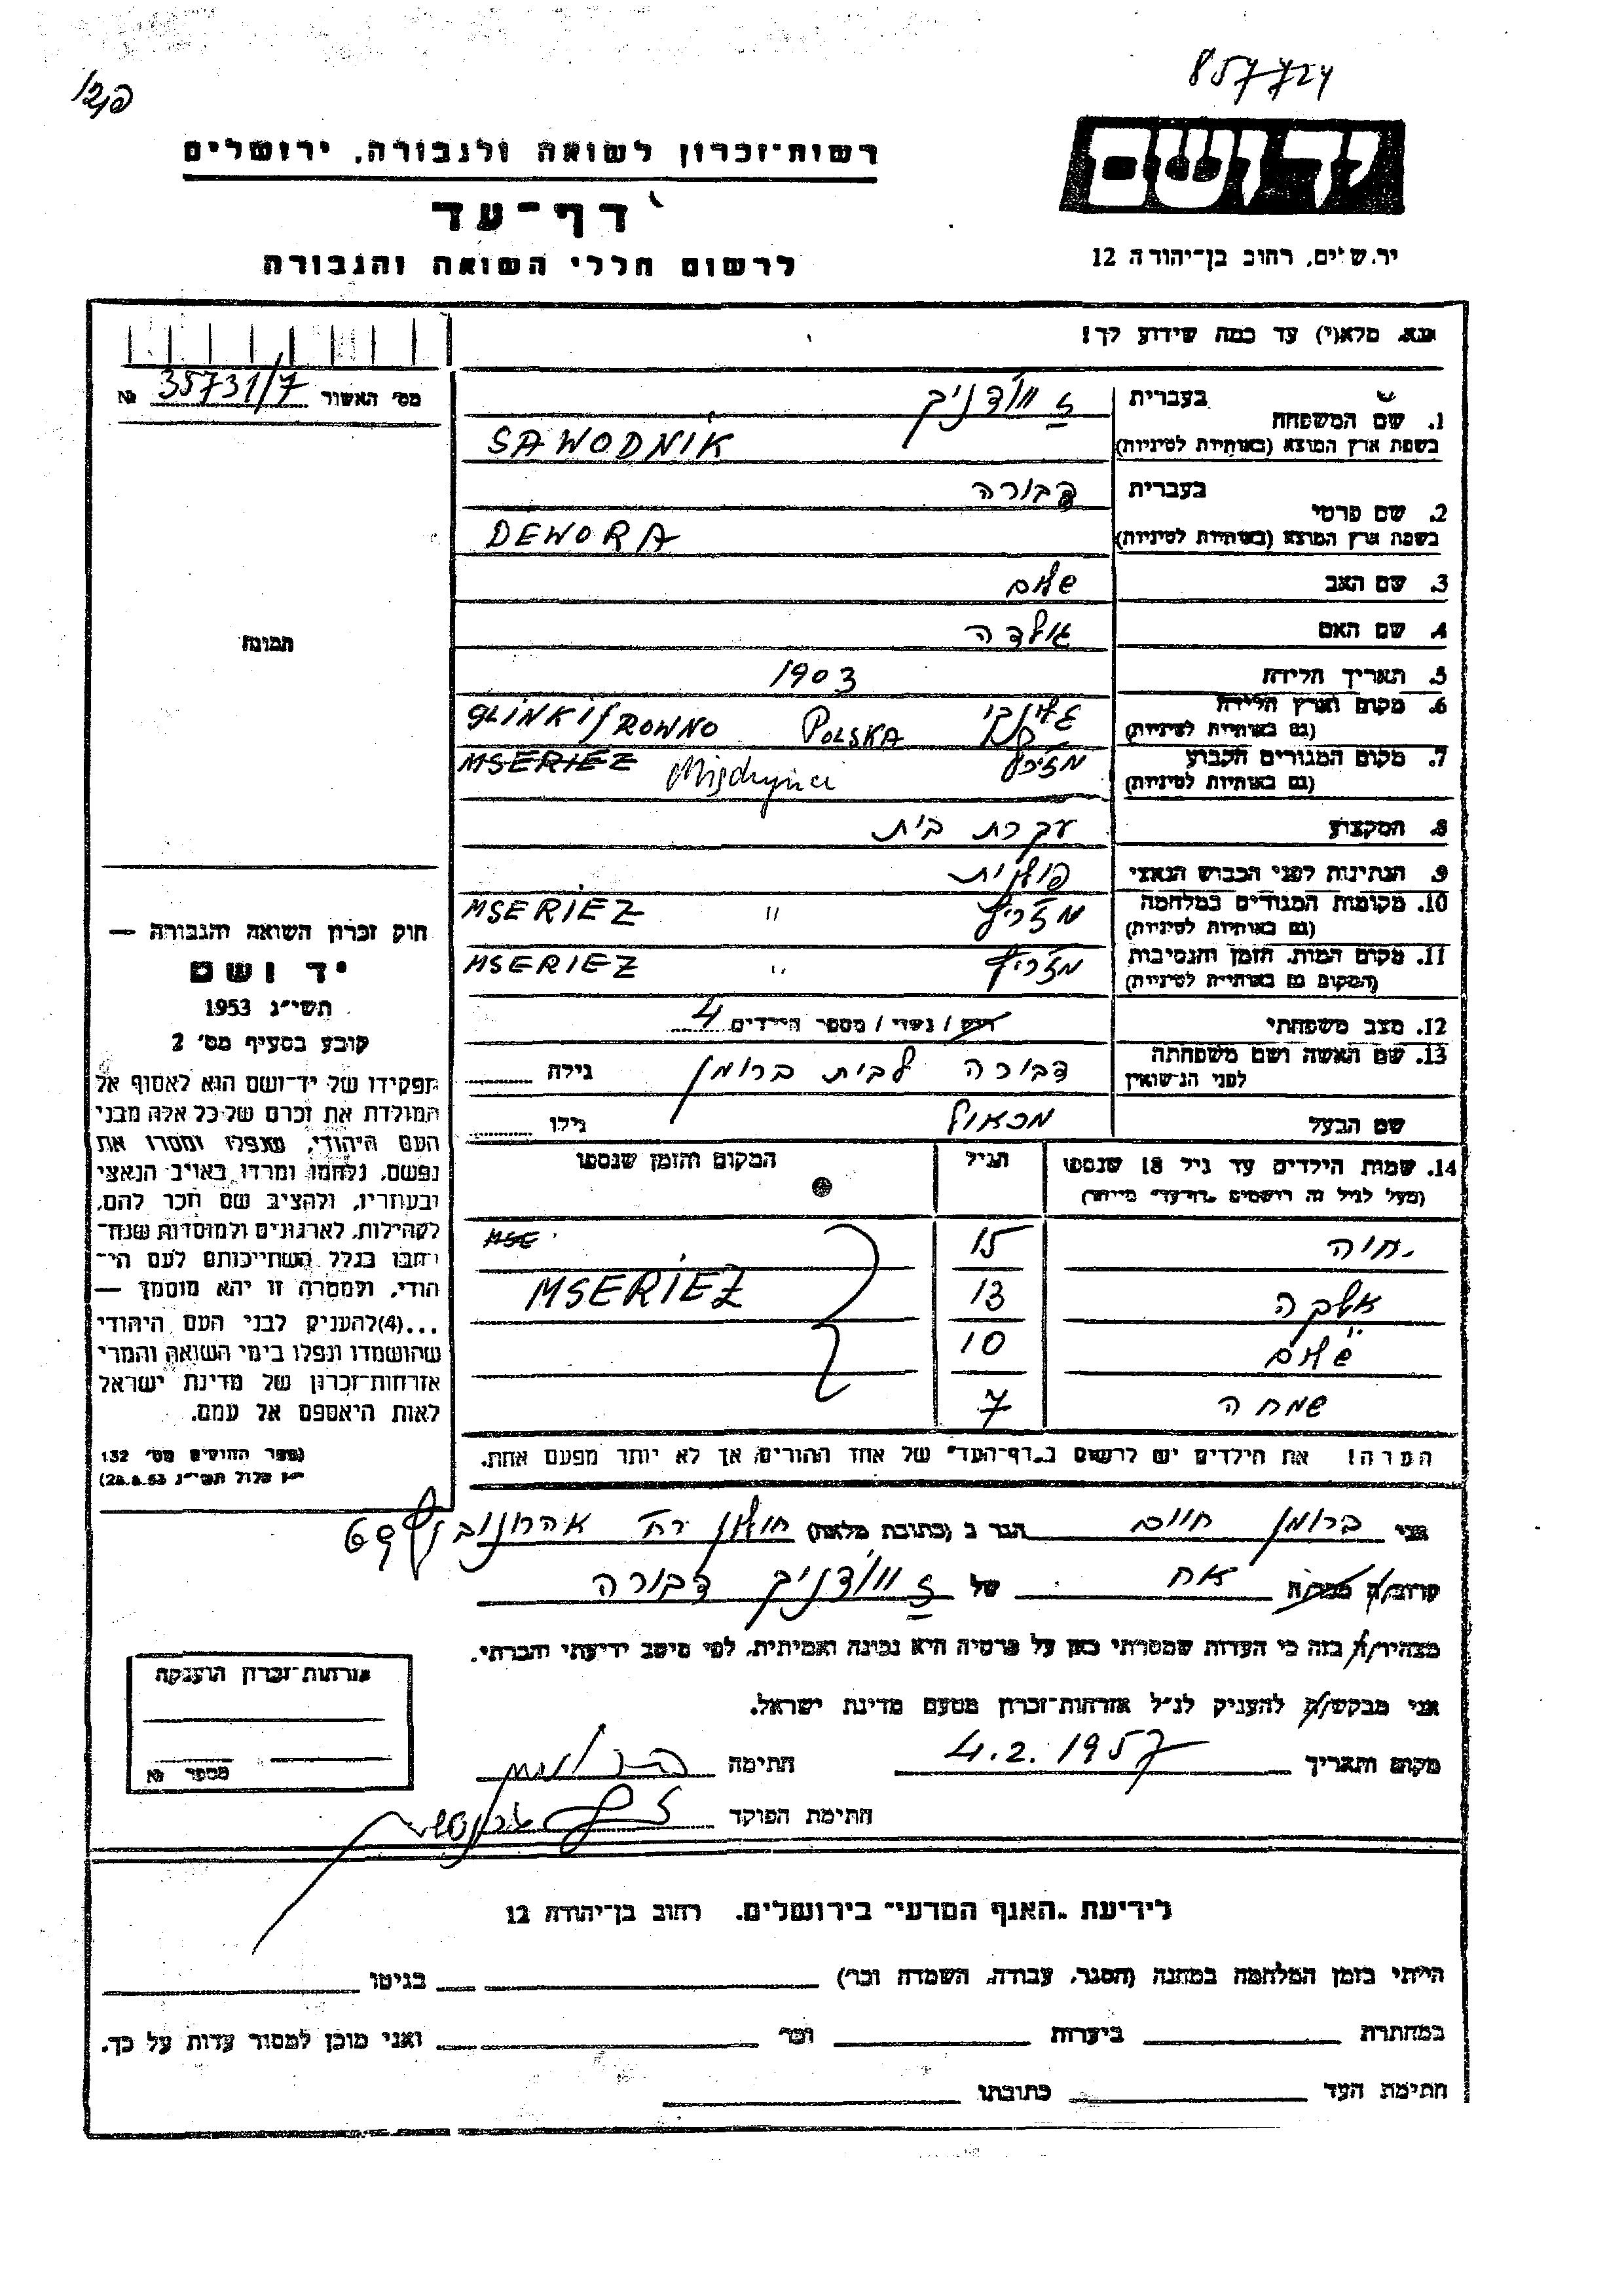 857724
רשות־זכרון לשואה ולגבורה, ירושלים
יד ושם
דף־עד
לרשום חללי השואה והגבורה
רחוב בן־יהודה 12
נא מלא(י) עד כמה שידוע לך!
מס׳ האשור 35731/7 №
1. שם המשפחה
בעברית זוודניק
בשפת ארץ המוצא (באותיות לטיניות) SAWODNIK
2. שם פרטי
בעברית דבורה
בשפת ארץ המוצא (באותיות לטיניות) DEWORA
3. שם האב שלום
4. שם האם גולדה
תמונה
5. תאריך הלידה 1903
6. מקום וארץ הלידה
(גם באותיות לטיניות) GLINKI/ROWNO POLSKA
7. מקום המגורים הקבוע
(גם באותיות לטיניות) MSERIEZ
8. המקצוע עקרת בית
9. הנתינות לפני הכבוש הנאצי פולנית
10. מקומות המגורים במלחמה
(גם באותיות לטיניות) מזריץ " MSERIEZ
11. מקום המות, הזמן והנסיבות
(המקום גם באותיות לטיניות) מזריץ " MSERIEZ
12. מצב משפחתי רווק / נשוי / מספר הילדים 4
13. שם האשה ושם משפחתה
לפני הנישואין דבורה לבית ברומן גילה
שם הבעל מכאול גילו
14. שמות הילדים עד גיל 18 שנספו הגיל המקום והזמן שנספו
(מעל לגיל זה רושמים "דף־עד" מיוחד)
חוה 15 MSE
13 MSERIEZ
שלום 10
שמחה 7
הערה! את הילדים יש לרשום ב"דף־העד" של אחד ההורים, אך לא יותר מפעם אחת.
חוק זכרון השואה והגבורה —
יד ושם
תשי״ג 1953
קובע בסעיף מס׳ 2
תפקידו של יד־ושם הוא לאסוף אל
המולדת את זכרם של כל אלה מבני
העם היהודי, שנפלו ומסרו את
נפשם, נלחמו ומרדו באויב הנאצי
ובעוזריו, ולהציב שם וזכר להם,
לקהילות, לארגונים ולמוסדות שנח־
רבו בגלל השתייכותם לעם הי־
הודי, ולמטרה זו יהא מוסמך —
...(4)להעניק לבני העם היהודי
שהושמדו ונפלו בימי השואה והמרי
אזרחות־זכרון של מדינת ישראל
לאות היאספם אל עמם.
(ספר החוקים מס׳ 132
אלול תשי״ג 28.8.53)
אני ברומן חיים הגר ב (כתובת מלאה) חולון רח׳ אהרונוביץ
קרוב/ה מכר/ה אח של זוודניק דבורה
מצהיר/ה בזה כי העדות שמסרתי כאן על פרטיה היא נכונה ואמיתית, לפי מיטב ידיעתי והכרתי.
אני מבקש/ת להעניק לנ״ל אזרחות־זכרון מטעם מדינת ישראל.
מקום ותאריך 4.2.1957 חתימה
חתימת הפוקד
אזרחות־זכרון הוענקה
מספר №
לידיעת "האגף המדעי" בירושלים, רחוב בן־יהודה 12
הייתי בזמן המלחמה במחנה (הסגר, עבודה, השמדה וכו׳) בגיטו
במחתרת ביערות וכו׳ ואני מוכן למסור עדות על כך.
חתימת העד כתובתו